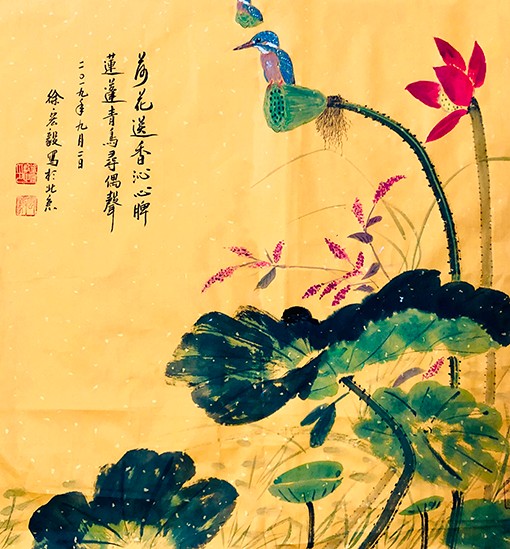 荷花送香沁心脾
蓮蓬青鳥尋偶聲
二〇一九年九月二日
徐宏毅寫於北京